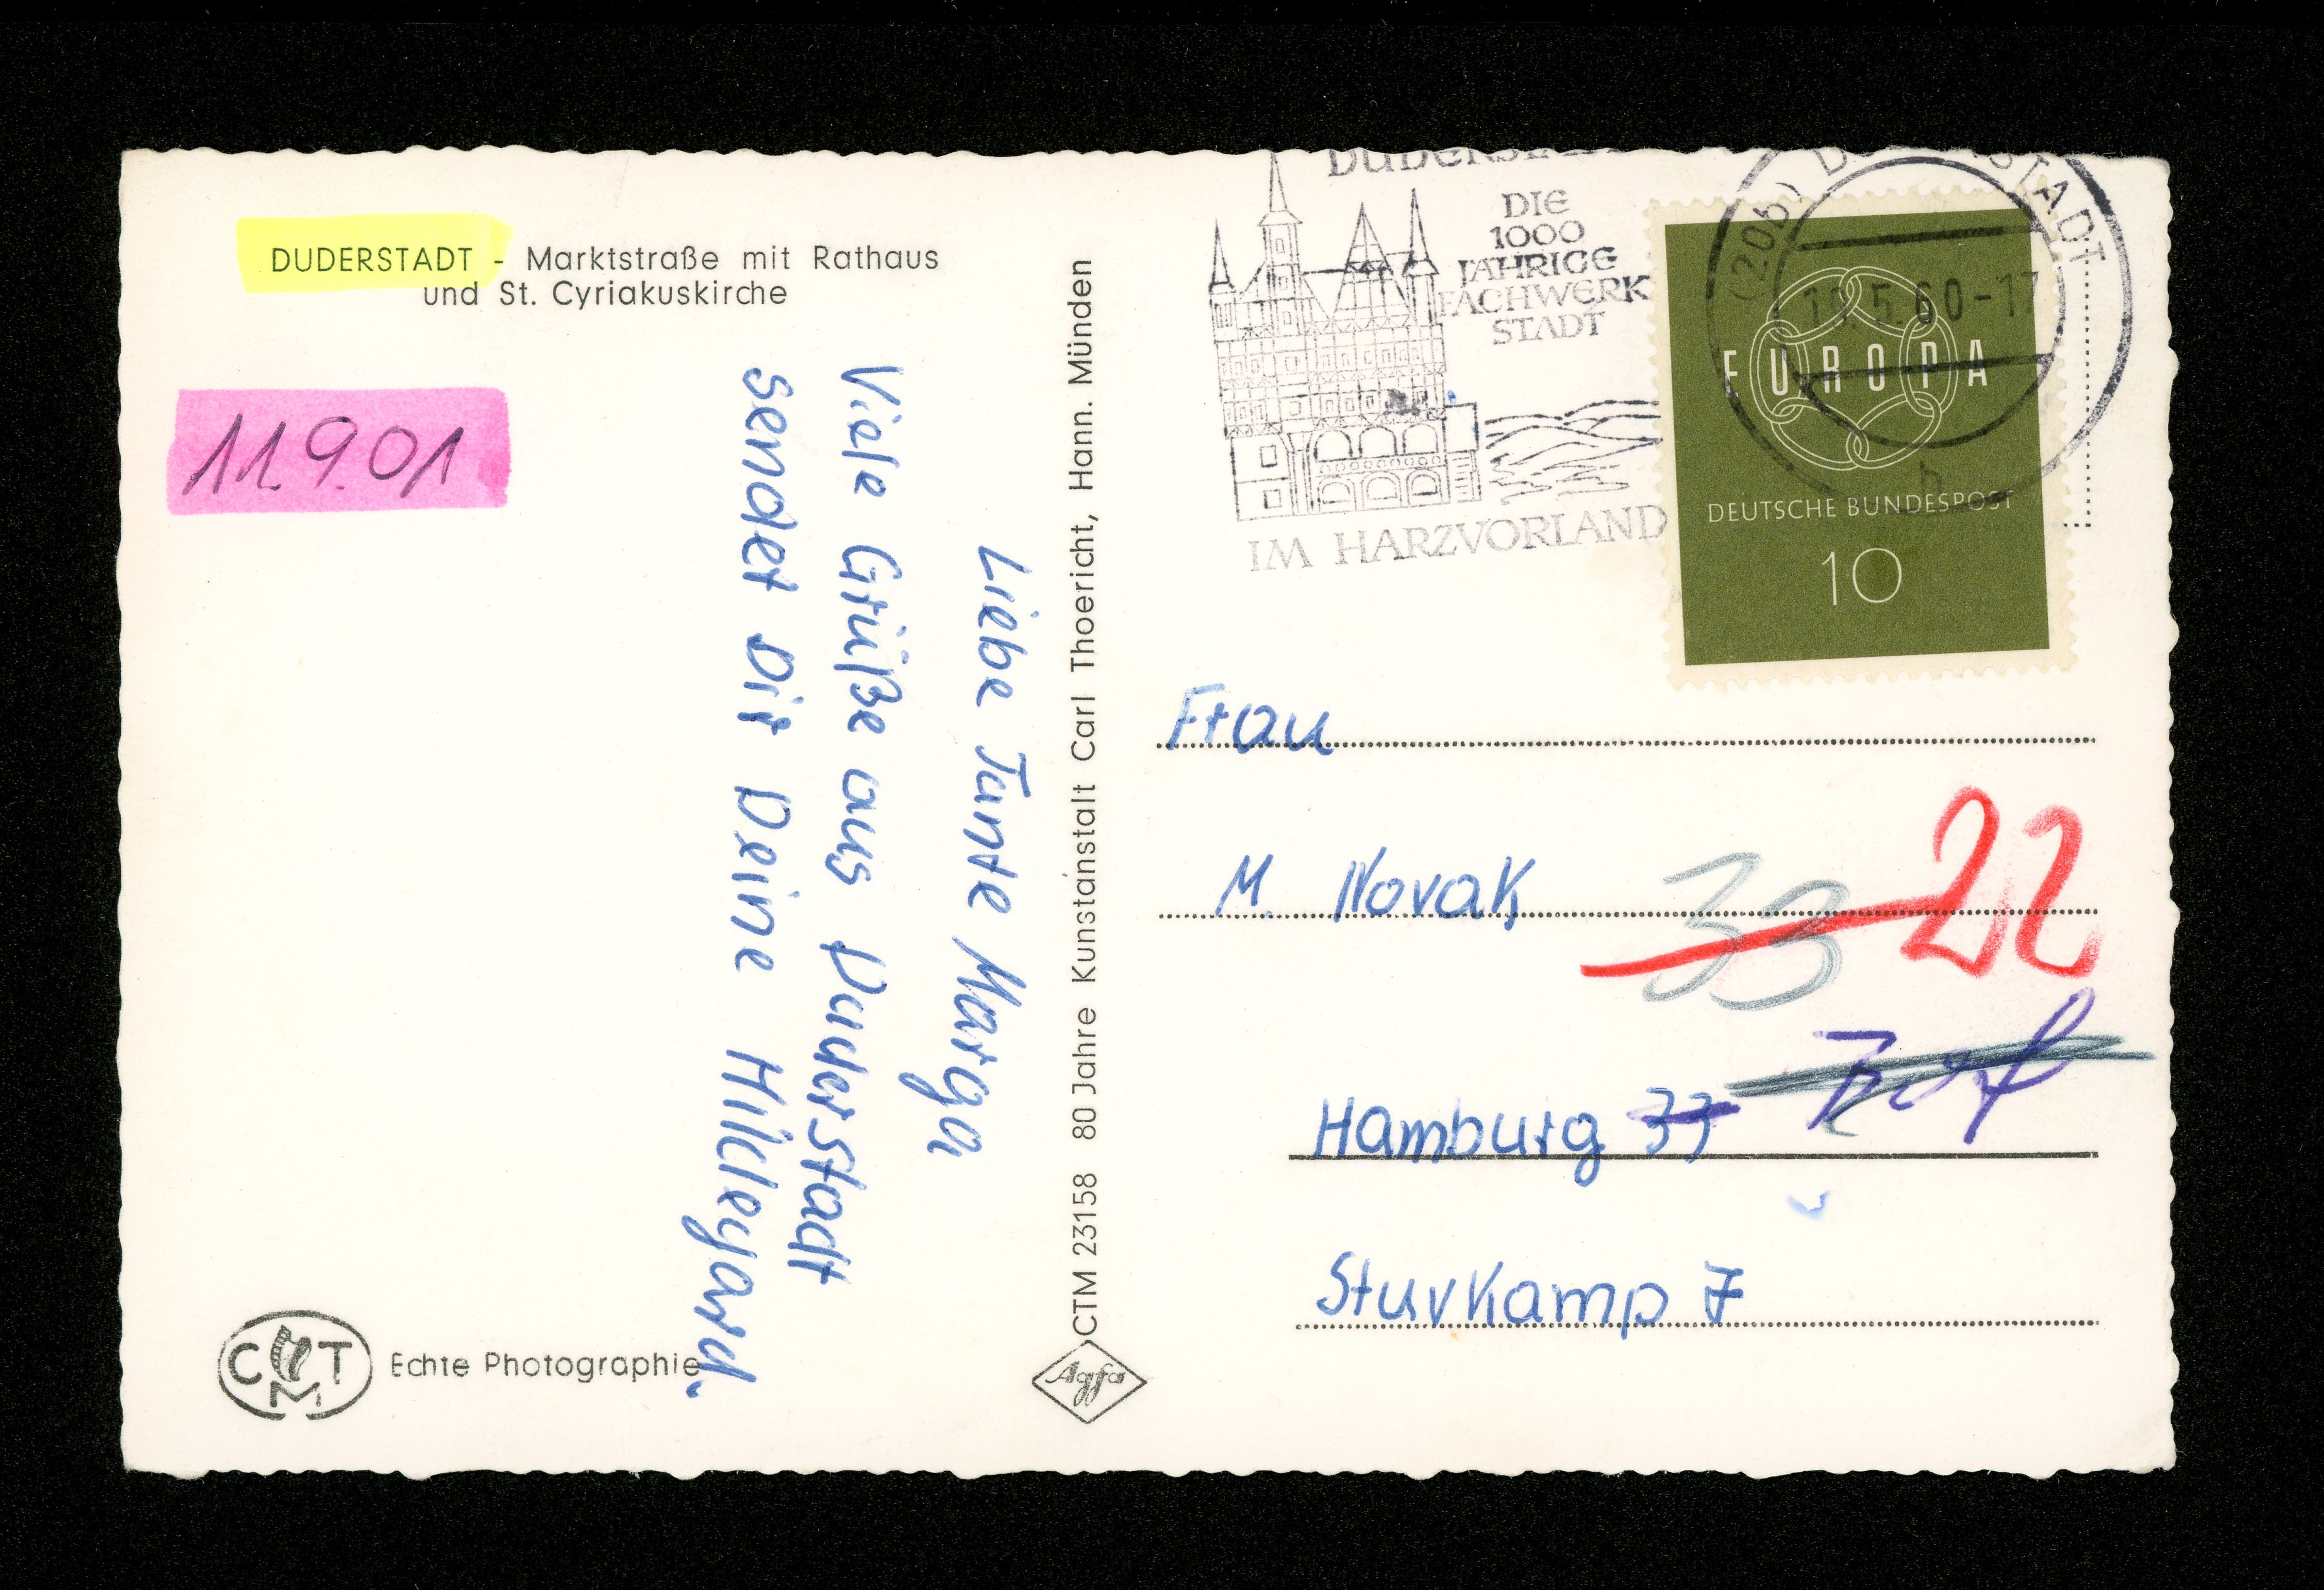 DUDERSTADT - Marktstraße mit Rathaus
und St. Cyriakuskirche
11.9.01
Liebe Tante Marga
Viele Grüße aus Duderstadt
sendet Dir Deine Hildegard.
C M T
Echte Photographie
CTM 23158 80 Jahre Kunstanstalt Carl Thoericht, Hann. Münden
Agfa
DUDERSTADT
DIE
1000
JÄHRIGE
FACHWERK
STADT
IM HARZVORLAND
(20b) DUDERSTADT
.5.60-17
b
EUROPA
DEUTSCHE BUNDESPOST
10
Frau
M. Novak
33 22
Hamburg 33
Stuvkamp 7